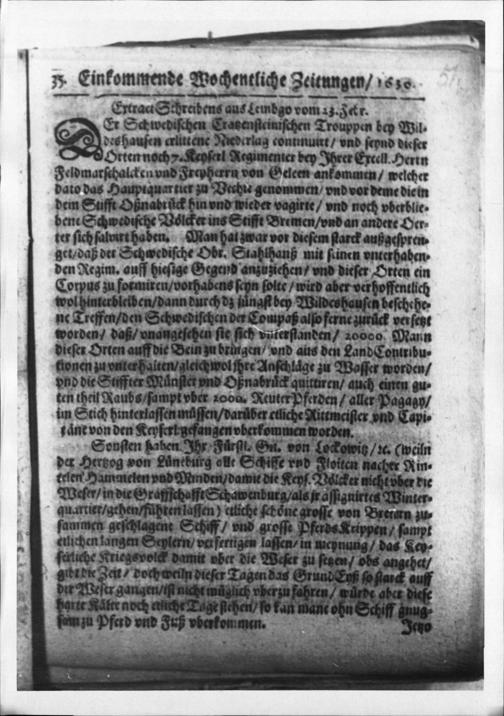 35. Einkommende Wochentliche Zeitungen/ 1636.
Extract Schreibens aus Lemdgo vom 23. Febr.
Er Schwedischen Cratzensteinischen Trouppen bey Wil-
deshausen erlittene Niederlag continuirt/ vnd seynd dieser
Orten noch 7. Keyserl Regimenter bey Jhrer Excell. Herrn
Feldmarschalcken vnd Freyherrn von Geleen ankommen/ welcher
dato das Hauptquartier zu Vechte genommen/ vnd vor deme die in
dem Stifft Oßnabrück hin vnd wieder vagirte/ vnd noch vberblie-
bene Schwedische Völcker ins Stifft Bremen/ vnd an andere Oer-
ter sich salvirt haben. Man hat zwar vor diesem starck außgespren-
get/ daß der Schwedische Obr. Stahlhanß mit seinen vnterhaben-
den Regim. auff hiesige Gegend anzuziehen/ vnd dieser Orten ein
Corpus zu formiren/ vorhabens seyn solte/ wird aber verhoffentlich
wol hinterbleiben/ dann durch dz jüngst bey Wildeshausen beschehe-
ne Treffen/ den Schwedischen der Compaß also ferne zurück versetzt
worden/ daß/ vnangesehen sie sich vnterstanden/ 20000 Mann
dieser Orten auff die Bein zu bringen/ vnd aus den Land Contribu-
tionen zu vnterhalten/ gleichwol jhre Anschläge zu Wasser worden/
vnd die Stiffter Münster vnd Oßnabrück quittiren/ auch einen gu-
ten theil Raubs/ sampt vber 2000. Reuter Pferden/ aller Pagagy/
im Stich hinterlassen müssen/ darüber etliche Rittmeister vnd Capi-
täne von den Keyserl gefangen vberkommen worden.
Sonsten haben Jhr Fürstl. Gn. von Lockowitz/ ꝛc. (weiln
der Hertzog von Lüneburg alle Schiffe vnd Floiten nacher Rin-
telen Hammelen vnd Minden/ damit die Keys. Völcker nicht vber die
Weser/ in die Graffschafft Schawenburg/ als jr assignirtes Winter-
quartier/ gehen/ führen lassen) etliche schöne grosse von Bretern zu-
sammen geschlagene Schiff/ vnd grosse Pferds Krippen/ sampt
etlichen langen Seylern/ verfertigen lassen/ in meynung/ das Key-
serliche Kriegsvolck damit vber die Weser zu setzen/ obs angehet/
gibt die Zeit/ doch weiln dieser Tagen das Grund Eyß so starck auff
der Weser gangen/ ist nicht müglich vberzufahren/ würde aber diese
harte Kälte noch etliche Tage stehen/ so kan mans ohn Schiff gnug-
sam zu Pferd vnd Fuß vberkommen.
Jetzo